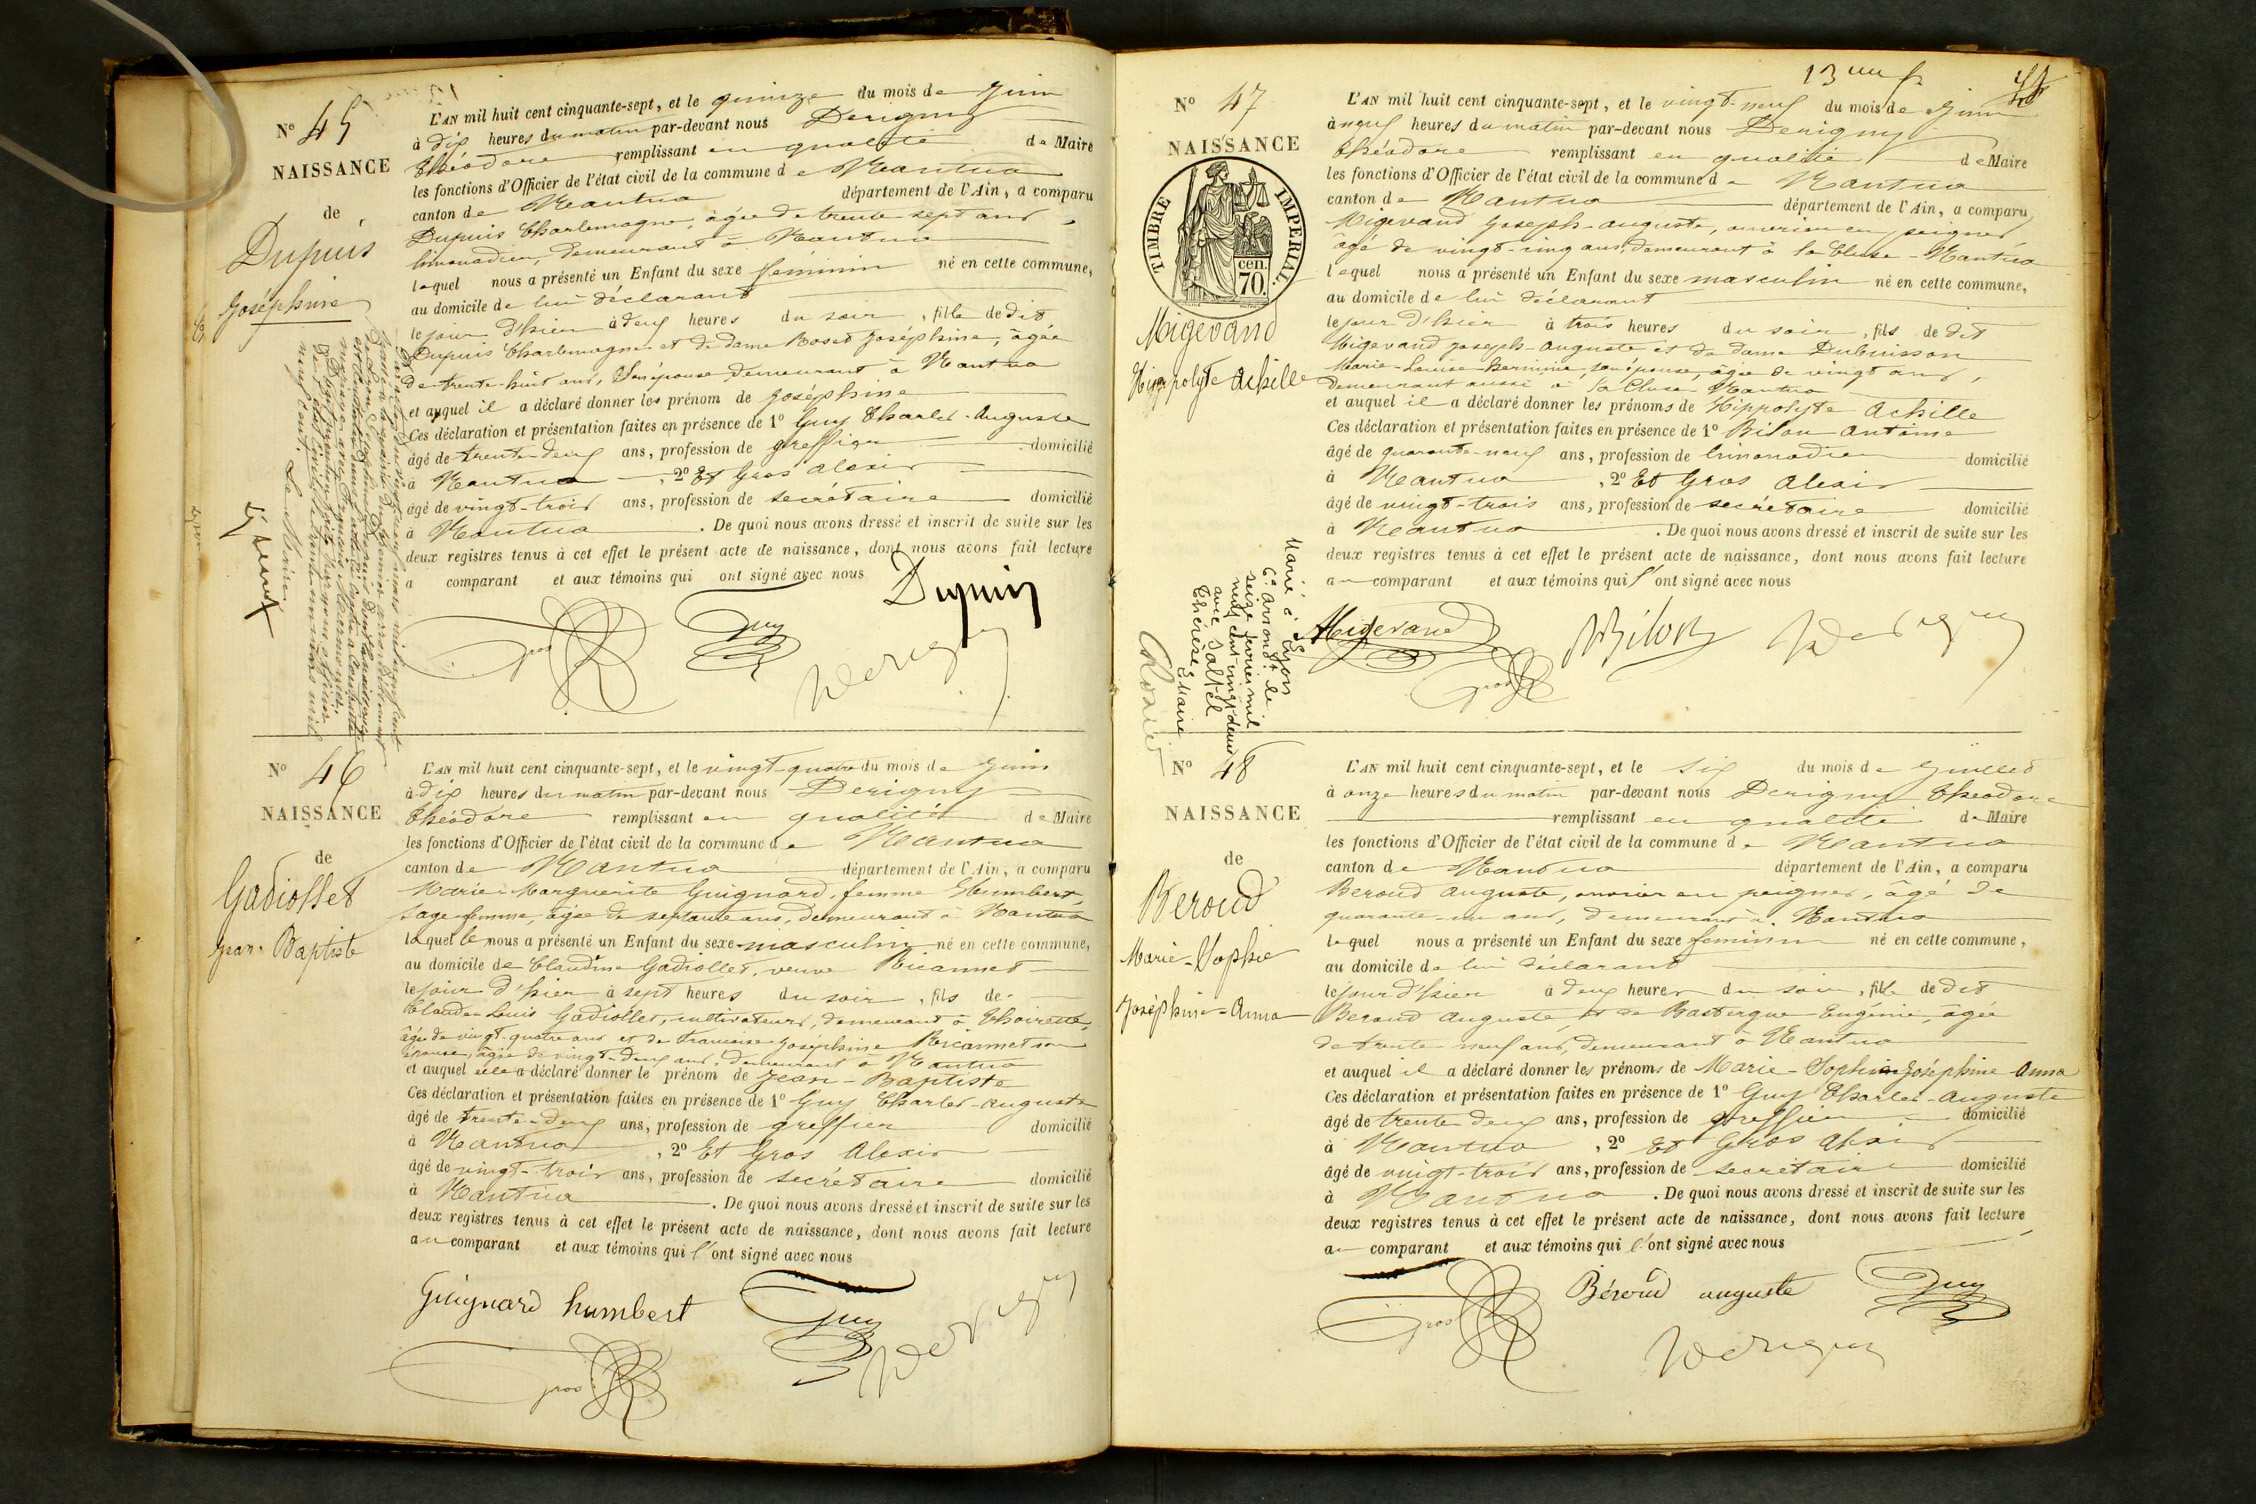 N° 45
NAISSANCE
de
Dupuis
Joséphine
L'AN mil huit cent cinquante-sept, et le quinze du mois de Juin
à dix heures du matin par-devant nous Derigny
Théodore remplissant en qualité de Maire
les fonctions d'Officier de l'état civil de la commune de Nantua
canton de Nantua département de l'Ain, a comparu
Dupuis Charlemagne, âgé de trente sept ans,
limonadier, demeurant à Nantua
lequel nous a présenté un Enfant du sexe féminin né en cette commune,
au domicile de lui déclarant
le jour d'hier à deux heures du soir, fille de dit
Dupuis Charlemagne et de dame Boset Joséphine, âgée
de trente-huit ans, son épouse, demeurant à Nantua
et auquel il a déclaré donner les prénom de Joséphine
Ces déclaration et présentation faites en présence de 1° Guy Charles-Auguste
âgé de trente-deux ans, profession de greffier domicilié
à Nantua, 2° Et Gros Alexis
âgé de vingt-trois ans, profession de secrétaire domicilié
à Nantua. De quoi nous avons dressé et inscrit de suite sur les
deux registres tenus à cet effet le présent acte de naissance, dont nous avons fait lecture
a comparant et aux témoins qui ont signé avec nous
Dupuis
Gros
Guy
Derigny
Le Maire
N° 46
NAISSANCE
de
Gadiollet
Jean-Baptiste
L'AN mil huit cent cinquante-sept, et le vingt-quatre du mois de Juin
à dix heures du matin par-devant nous Derigny
Théodore remplissant en qualité de Maire
les fonctions d'Officier de l'état civil de la commune de Nantua
canton de Nantua département de l'Ain, a comparu
Marie-Marguerite Guignard, femme Humbert,
sage-femme, âgée de septante ans, demeurant à Nantua
laquelle nous a présenté un Enfant du sexe masculin né en cette commune,
au domicile de Claudine Gadiollet, veuve Ricannet
le jour d'hier à sept heures du soir, fils de
Claude-Louis Gadiollet, cultivateur, demeurant à Thoirette,
âgé de vingt-quatre ans et de Françoise-Joséphine Ricannet son
épouse, âgée de vingt-deux ans, demeurant à Nantua
et auquel elle a déclaré donner le prénom de Jean-Baptiste
Ces déclaration et présentation faites en présence de 1° Guy Charles-Auguste
âgé de trente-deux ans, profession de greffier domicilié
à Nantua, 2° Et Gros Alexis
âgé de vingt-trois ans, profession de secrétaire domicilié
à Nantua. De quoi nous avons dressé et inscrit de suite sur les
deux registres tenus à cet effet le présent acte de naissance, dont nous avons fait lecture
au comparant et aux témoins qui l'ont signé avec nous
Guignard humbert
Guy
Derigny
Gros
N° 47
NAISSANCE
TIMBRE IMPERIAL.
70. cen.
Migevand
Hippolyte Achille
L'AN mil huit cent cinquante-sept, et le vingt-neuf du mois de Juin
à neuf heures du matin par-devant nous Derigny
Théodore remplissant en qualité de Maire
les fonctions d'Officier de l'état civil de la commune de Nantua
canton de Nantua département de l'Ain, a comparu
Migevand Joseph-Auguste, ouvrier en peignes
âgé de vingt-cinq ans, demeurant à la Cluse-Nantua
lequel nous a présenté un Enfant du sexe masculin né en cette commune,
au domicile de lui déclarant
le jour d'hier à trois heures du soir, fils de dit
Migevand Joseph-Auguste et de dame Dubuisson
Marie-Louise-Hermine, son épouse, âgée de vingt ans,
demeurant aussi à la Cluse Nantua
et auquel il a déclaré donner les prénoms de Hippolyte Achille
Ces déclaration et présentation faites en présence de 1° Bilon Antoine
âgé de quarante-neuf ans, profession de limonadier domicilié
à Nantua, 2° Et Gros Alexis
âgé de vingt-trois ans, profession de secrétaire domicilié
à Nantua. De quoi nous avons dressé et inscrit de suite sur les
deux registres tenus à cet effet le présent acte de naissance, dont nous avons fait lecture
au comparant et aux témoins qui l'ont signé avec nous
Migevand
Bilon
Derigny
Gros
Marié à Lyon
6e arrond.t le
seize février mil
neuf cent vingt-deux
avec
Thérèse
N° 48
NAISSANCE
de
Beroud
Marie-Sophie
Joséphine-Anna
L'AN mil huit cent cinquante-sept, et le six du mois de Juillet
à onze heures du matin par-devant nous Derigny Théodore
remplissant en qualité de Maire
les fonctions d'Officier de l'état civil de la commune de Nantua
canton de Nantua département de l'Ain, a comparu
Beroud Auguste, ouvrier en peignes, âgé de
quarante-un ans, demeurant à Nantua
lequel nous a présenté un Enfant du sexe féminin né en cette commune,
au domicile de lui déclarant
le jour d'hier à deux heures du soir, fille de dit
Beroud Auguste et de Rastergue Eugénie, âgée
de trente-neuf ans, demeurant à Nantua
et auquel il a déclaré donner les prénoms de Marie-Sophie Joséphine Anna
Ces déclaration et présentation faites en présence de 1° Guy Charles-Auguste
âgé de trente deux ans, profession de greffier domicilié
à Nantua, 2° Et Gros Alexis
âgé de vingt-trois ans, profession de secrétaire domicilié
à Nantua. De quoi nous avons dressé et inscrit de suite sur les
deux registres tenus à cet effet le présent acte de naissance, dont nous avons fait lecture
au comparant et aux témoins qui l'ont signé avec nous
Gros
Béroud auguste
Guy
Derigny